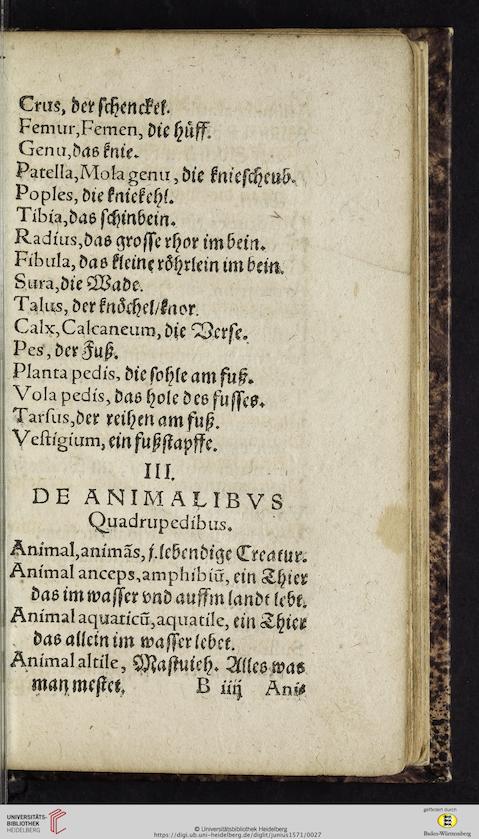 Crus, der schenckel.
Femur,Femen, die hüff.
Genu,das knie.
Patella,Mola genu, die kniescheub.
Poples, die kniekehl.
Tibia,das schinbein.
Radius,das grosse rhor im bein.
Fibula, das kleine röhrlein im bein.
Sura,die Wade.
Talus, der knöchel/knor.
Calx,Calcaneum, die Verse.
Pes, der Fuß.
Planta pedis, die sohle am fuß.
Vola pedis, das hole des fusses.
Tarsus,der reihen am fuß.
Vestigium, ein fußstapffe.
III.
DE ANIMALIBVS
Quadrupedibus.
Animal,animãs, j.lebendige Creatur.
Animal anceps,amphibiũ, ein Thier
das im wasser vnd auffm landt lebt.
Animal aquaticũ,aquatile, ein Thier
das allein im wasser lebet.
Animal altile, Mastuieh. Alles was
man mestet. B iiij Anis
UNIVERSITÄTS-
BIBLIOTHEK
HEIDELBERG
© Universitätsbibliothek Heidelberg
https://digi.ub.uni-heidelberg.de/diglit/junius1571/0027
gefördert durch
Baden-Württemberg